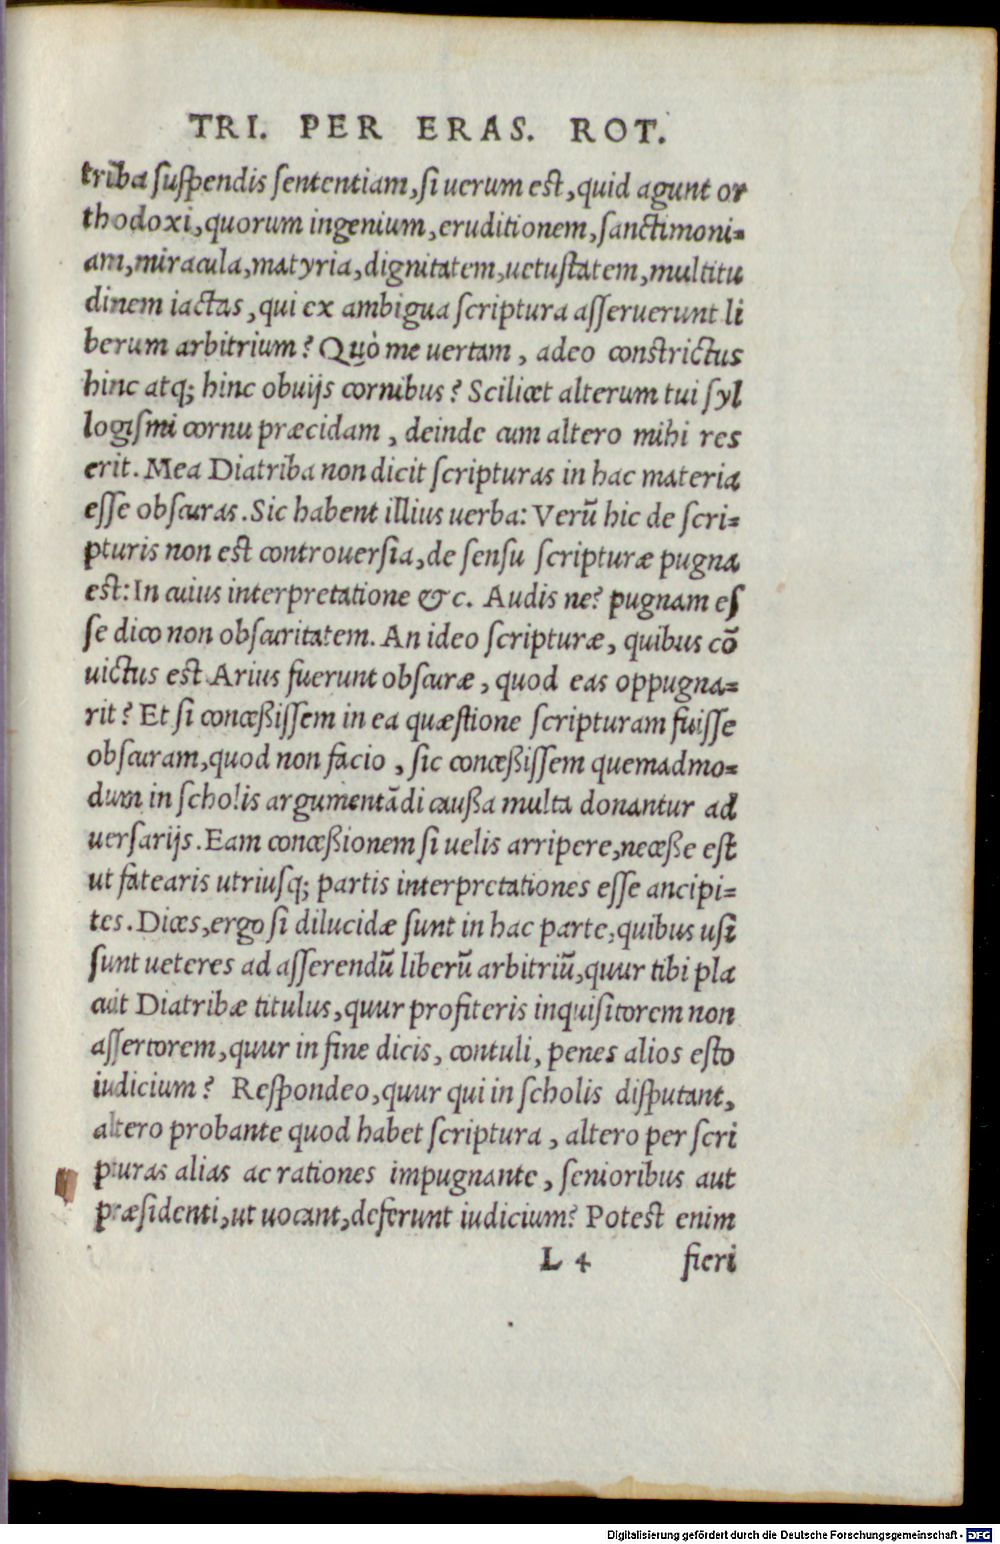 TRI. PER ERAS. ROT.
triba suspendis sententiam, si uerum est, quid agunt or
thodoxi, quorum ingenium, eruditionem, sanctimoni-
am, miracula, matyria, dignitatem, uetustatem, multitu
dinem iactas, qui ex ambigua scriptura asseruerunt li
berum arbitrium? Quò me uertam, adeo constrictus
hinc atq; hinc obuijs cornibus? Scilicet alterum tui syl
logismi cornu præcidam, deinde cum altero mihi res
erit. Mea Diatriba non dicit scripturas in hac materia
esse obscuras. Sic habent illius uerba: Verū hic de scri-
pturis non est controuersia, de sensu scripturæ pugna
est: In cuius interpretatione &c. Audis ne? pugnam es
se dico non obscuritatem. An ideo scripturæ, quibus cō
uictus est Arius fuerunt obscuræ, quod eas oppugna-
rit? Et si conceßissem in ea quæstione scripturam fuisse
obscuram, quod non facio, sic conceßissem quemadmo-
dum in scholis argumentādi caußa multa donantur ad
uersarijs. Eam conceßionem si uelis arripere, neceße est
ut fatearis utriusq; partis interpretationes esse ancipi-
tes. Dices, ergo si dilucidæ sunt in hac parte, quibus usi
sunt ueteres ad asserendū liberū arbitriū, quur tibi pla
cuit Diatribæ titulus, quur profiteris inquisitorem non
assertorem, quur in fine dicis, contuli, penes alios esto
iudicium? Respondeo, quur qui in scholis disputant,
altero probante quod habet scriptura, altero per scri
pturas alias ac rationes impugnante, senioribus aut
præsidenti, ut uocant, deferunt iudicium? Potest enim
L 4 fieri
Digitalisierung gefördert durch die Deutsche Forschungsgemeinschaft - DFG